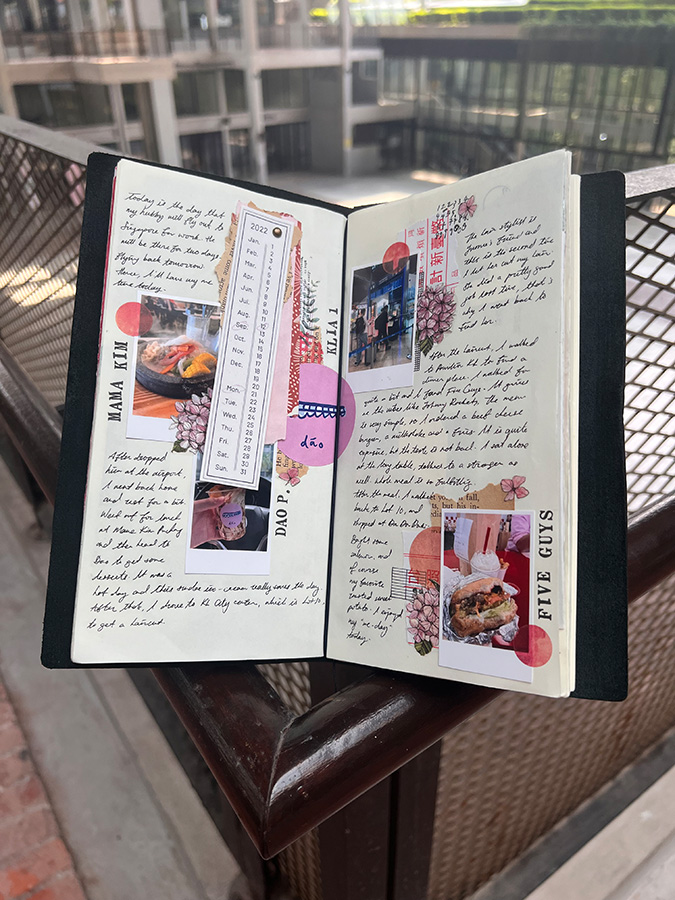 Today is the day that
my hubby will fly out to
Singapore for work. He
will be there for two days
flying back tomorrow
there, I'll have my me
time today.
MAMA KIM
2022
Jan.
Feb.
Mar.
Apr.
May.
Jun.
Jul.
Aug.
Sep.
Oct.
Nov.
Dec.
Mon.
Tue.
Wed.
Thu.
Fri.
Sat.
Sun.
1
2
3
4
5
6
7
8
9
10
11
12
13
14
15
16
17
18
19
20
21
22
23
24
25
26
27
28
29
30
31
KLIA 1
dáo
DAO P.
After dropped
him at the airport,
I went back home
and rest for a bit.
Went out for lunch
at Mama Kim
and then head to
Dao to get some
desserts. It was a
hot day, and their ice-cream really saves the day
After that, I drove to KL City center, which is Lot 10,
to get a haircut.
計新臺
品
The hair stylist is
friend and
this is the second time
I let her cut my hair.
She did a pretty good
job last time, that's
why I went back to
find her.
After the haircut, I walked
to Pavilion KL to find a
dinner place. I walked for
quite a bit and I found Five Guys. It gives
me the vibes like Johnny Rockets. The menu
is very simple, so I ordered a beef cheese
burger, a milkshake and a fries. It is quite
expensive, but the taste is not bad. I sat alone
at the long table, talked to a stranger as
well. Whole meal is so fulfilling.
After the meal, I walked
back to Lot 10, and
shopped at Don Don Donki.
Bought some
salmon, and
of course
my favorite
roasted sweet
potato. I enjoyed
my "me-day"
today.
FIVE GUYS